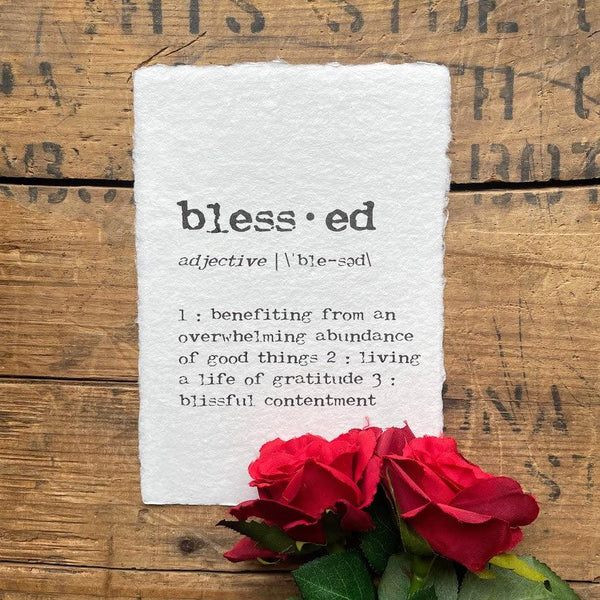 bless•ed
adjective | \ˈble-səd\
1 : benefiting from an
overwhelming abundance
of good things 2 : living
a life of gratitude 3 :
blissful contentment